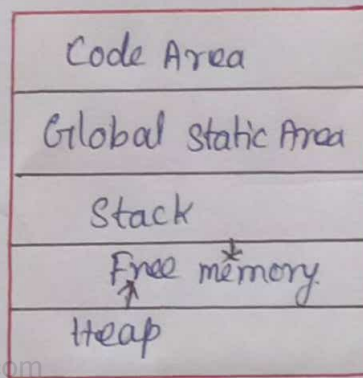 Code Area
Global Static Area
Stack
Free memory.
Heap
om